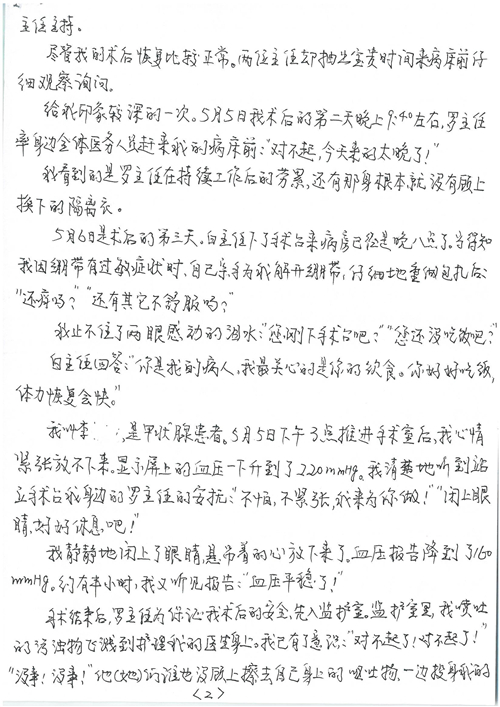 主任主持。
尽管我的术后恢复比较正常。两位主任却抽出宝贵时间来病床前仔
细观察询问。
给我印象较深的一次。5月5日我术后的第二天晚上9:40左右,罗主任
率身边全体医务人员赶来我的病床前:“对不起,今天来的太晚了!”
我看到的是罗主任在持续工作后的劳累,还有那身根本就没有顾上
换下的隔离衣。
5月6日是术后的第三天。白主任下了手术台来病房已经是晚八点了。当得知
我因绷带有过敏症状时,自己亲手为我解开绷带,仔细地重做包扎后:
“还痒吗?”“还有其它不舒服吗?”
我止不住了两眼感动的泪水:“您刚下手术台吧?”“您还没吃饭吧?”
白主任回答:“你是我的病人,我最关心的是你的饮食。你好好吃饭,
体力恢复会快。”
我叫李 ,是甲状腺患者。5月5日下午3点推进手术室后,我心情
紧张放不下来。显示屏上的血压一下升到了220mmHg。我清楚地听到站
立手术台我身边的罗主任的安抚:“不怕,不紧张,我来为你做!”“闭上眼
睛,好好休息吧!”
我静静地闭上了眼睛,悬吊着的心放下来了。血压报告降到了160
mmHg。约有半小时,我又听见报告:“血压平稳了!”
手术结束后,罗主任为保证我术后的安全,先入监护室。监护室里,我喷吐
的污浊物飞溅到护理我的医生身上。我已有了意识:“对不起了!对不起了!”
“没事!没事!”他(她)们谁也没顾上擦去自己身上的呕吐物,一边投身我的
<2>